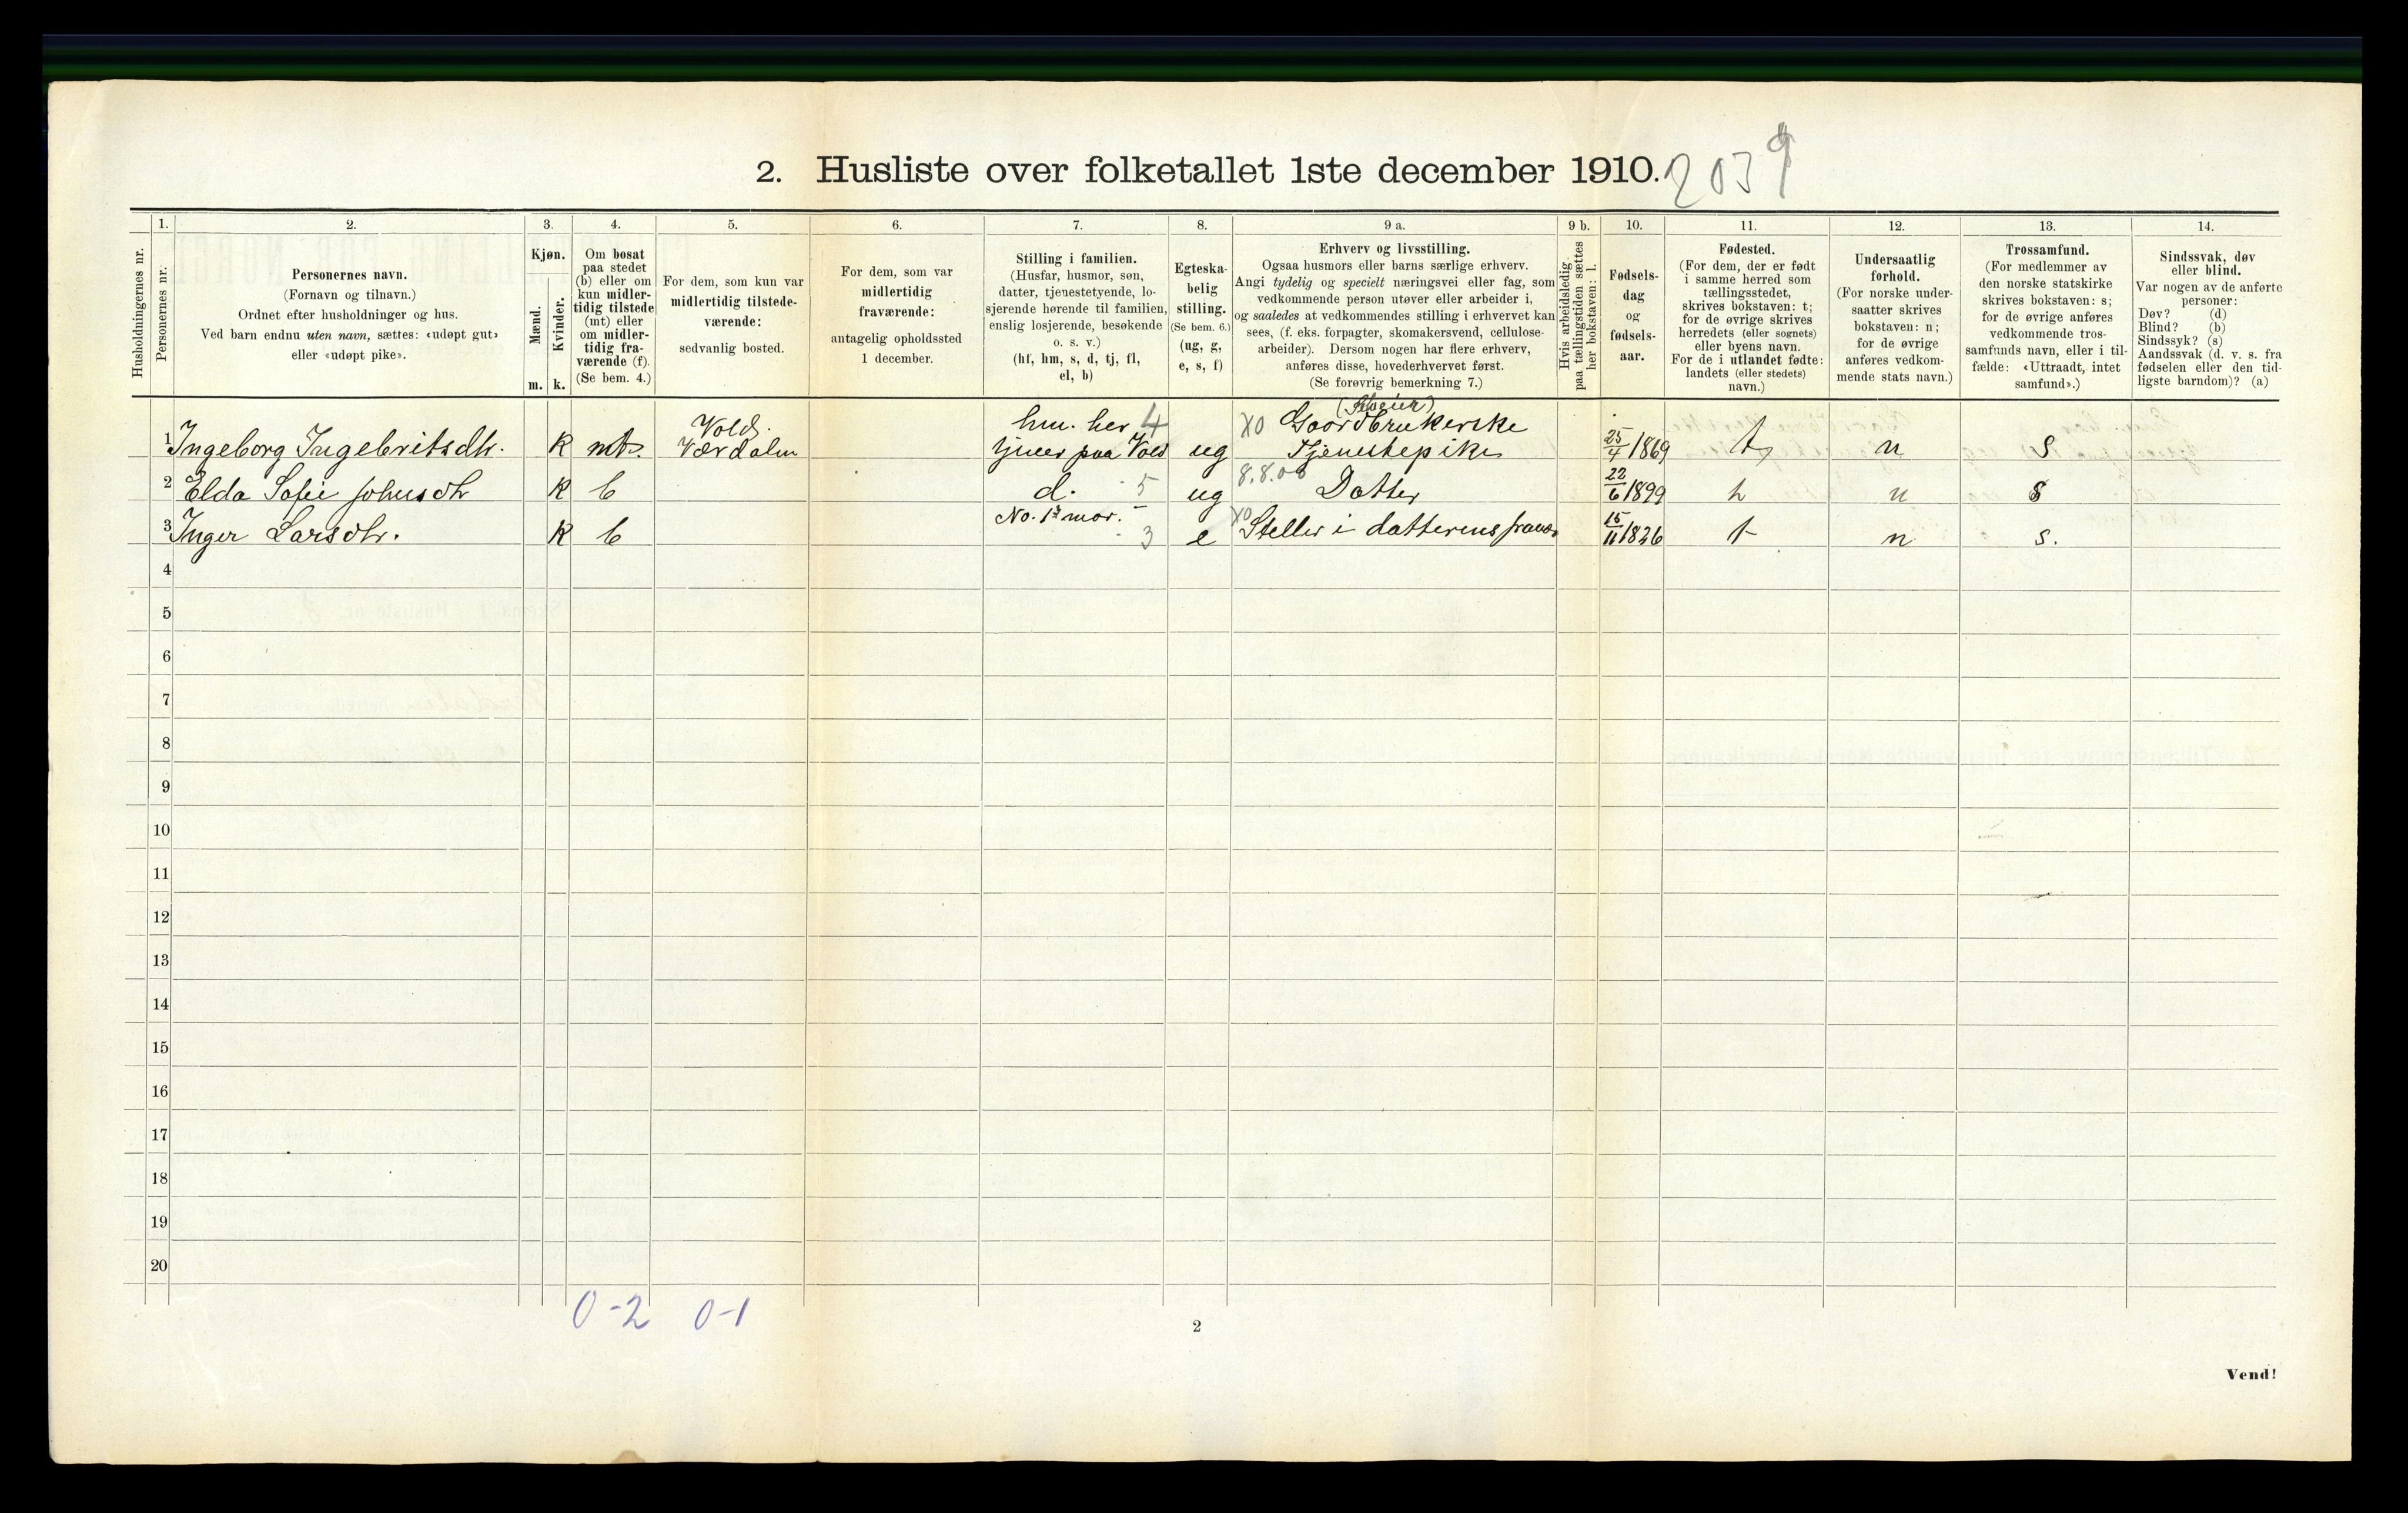 2. Husliste over folketallet 1ste december 1910. 2039
Husholdningernes nr.
1. Personernes nr.
2. Personernes navn.
(Fornavn og tilnavn.)
Ordnet efter husholdninger og hus.
Ved barn endnu uten navn, sættes: «udøpt gut»
eller «udøpt pike».
3. Kjøn.
Mænd. m.
Kvinder. k.
4. Om bosat
paa stedet
(b) eller om
kun midler-
tidig tilstede
(mt) eller
om midler-
tidig fra-
værende (f).
(Se bem. 4.)
5. For dem, som kun var
midlertidig tilstede-
værende:
sedvanlig bosted.
6. For dem, som var
midlertidig
fraværende:
antagelig opholdssted
1 december.
7. Stilling i familien.
(Husfar, husmor, søn,
datter, tjenestetyende, lo-
sjerende hørende til familien,
enslig losjerende, besøkende
o. s. v.)
(hf, hm, s, d, tj, fl,
el, b)
8. Egteska-
belig
stilling.
(Se bem. 6.)
(ug, g,
e, s, f)
9 a. Erhverv og livsstilling.
Ogsaa husmors eller barns særlige erhverv.
Angi tydelig og specielt næringsvei eller fag, som
vedkommende person utøver eller arbeider i,
og saaledes at vedkommendes stilling i erhvervet kan
sees, (f. eks. forpagter, skomakersvend, cellulose-
arbeider). Dersom nogen har flere erhverv,
anføres disse, hovederhvervet først.
(Se forøvrig bemerkning 7.)
9 b. Hvis arbeidsledig
paa tællingstiden sættes
her bokstaven: l.
10. Fødsels-
dag
og
fødsels-
aar.
11. Fødested.
(For dem, der er født
i samme herred som
tællingsstedet,
skrives bokstaven: t;
for de øvrige skrives
herredets (eller sognets)
eller byens navn.
For de i utlandet fødte:
landets (eller stedets)
navn.)
12. Undersaatlig
forhold.
(For norske under-
saatter skrives
bokstaven: n;
for de øvrige
anføres vedkom-
mende stats navn.)
13. Trossamfund.
(For medlemmer av
den norske statskirke
skrives bokstaven: s;
for de øvrige anføres
vedkommende tros-
samfunds navn, eller i til-
fælde: «Uttraadt, intet
samfund».)
14. Sindssvak, døv
eller blind.
Var nogen av de anførte
personer:
Døv? (d)
Blind? (b)
Sindssyk? (s)
Aandssvak (d. v. s. fra
fødselen eller den tid-
ligste barndom)? (a)
Vold. hm. her 4 X0 Gaardbrukerske
1 Ingeborg Ingebritsdtr. K mt. Værdalen tjener paa Vold ug Tjenestepike 25/4 1869 t n s
2 Elda Sofie Johnsdtr K b d. 5 ug Datter 22/6 1899 t n s
No. 1s mor.
3 Inger Larsdtr. K b 3 e X0 Steller i datterens fravær 15/11 1826 t n s.
4
5
6
7
8
9
10
11
12
13
14
15
16
17
18
19
20
0-2 0-1
2
Vend!